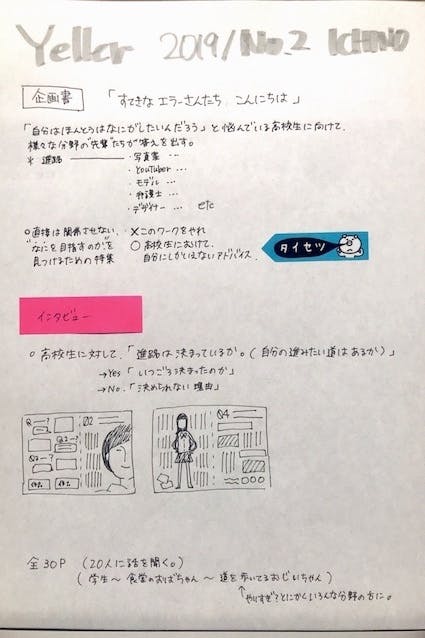 Yeller 2019/No.2 ICHINO
企画書 「すてきなエラーさんたち、こんにちは」
「自分はほんとうはなにがしたいんだろう」と悩んでいる高校生に向けて、
様々な分野の"先輩"たちが答えを出す。
* 進路 ・写真家 …
・YouTuber …
・モデル …
・弁護士 …
・デザイナー … etc
○直接は関係させない、
"なにを目指すのか"を
見つけるための特集
・×このワークをやれ
○高校生にむけて、
自分にしかいえないアドバイス。
タイセツ
インタビュー
○ 高校生に対して、「進路は決まっているか。(自分の進みたい道はあるか)」
→Yes 「いつごろ決まったのか」
→No. 「決められない理由」
Q2
Q4
全30P (20人に話を聞く。)
(学生〜食堂のおばちゃん〜道を歩いてるおじいちゃん)
↑やりすぎ?とにかくいろんな分野の方に。